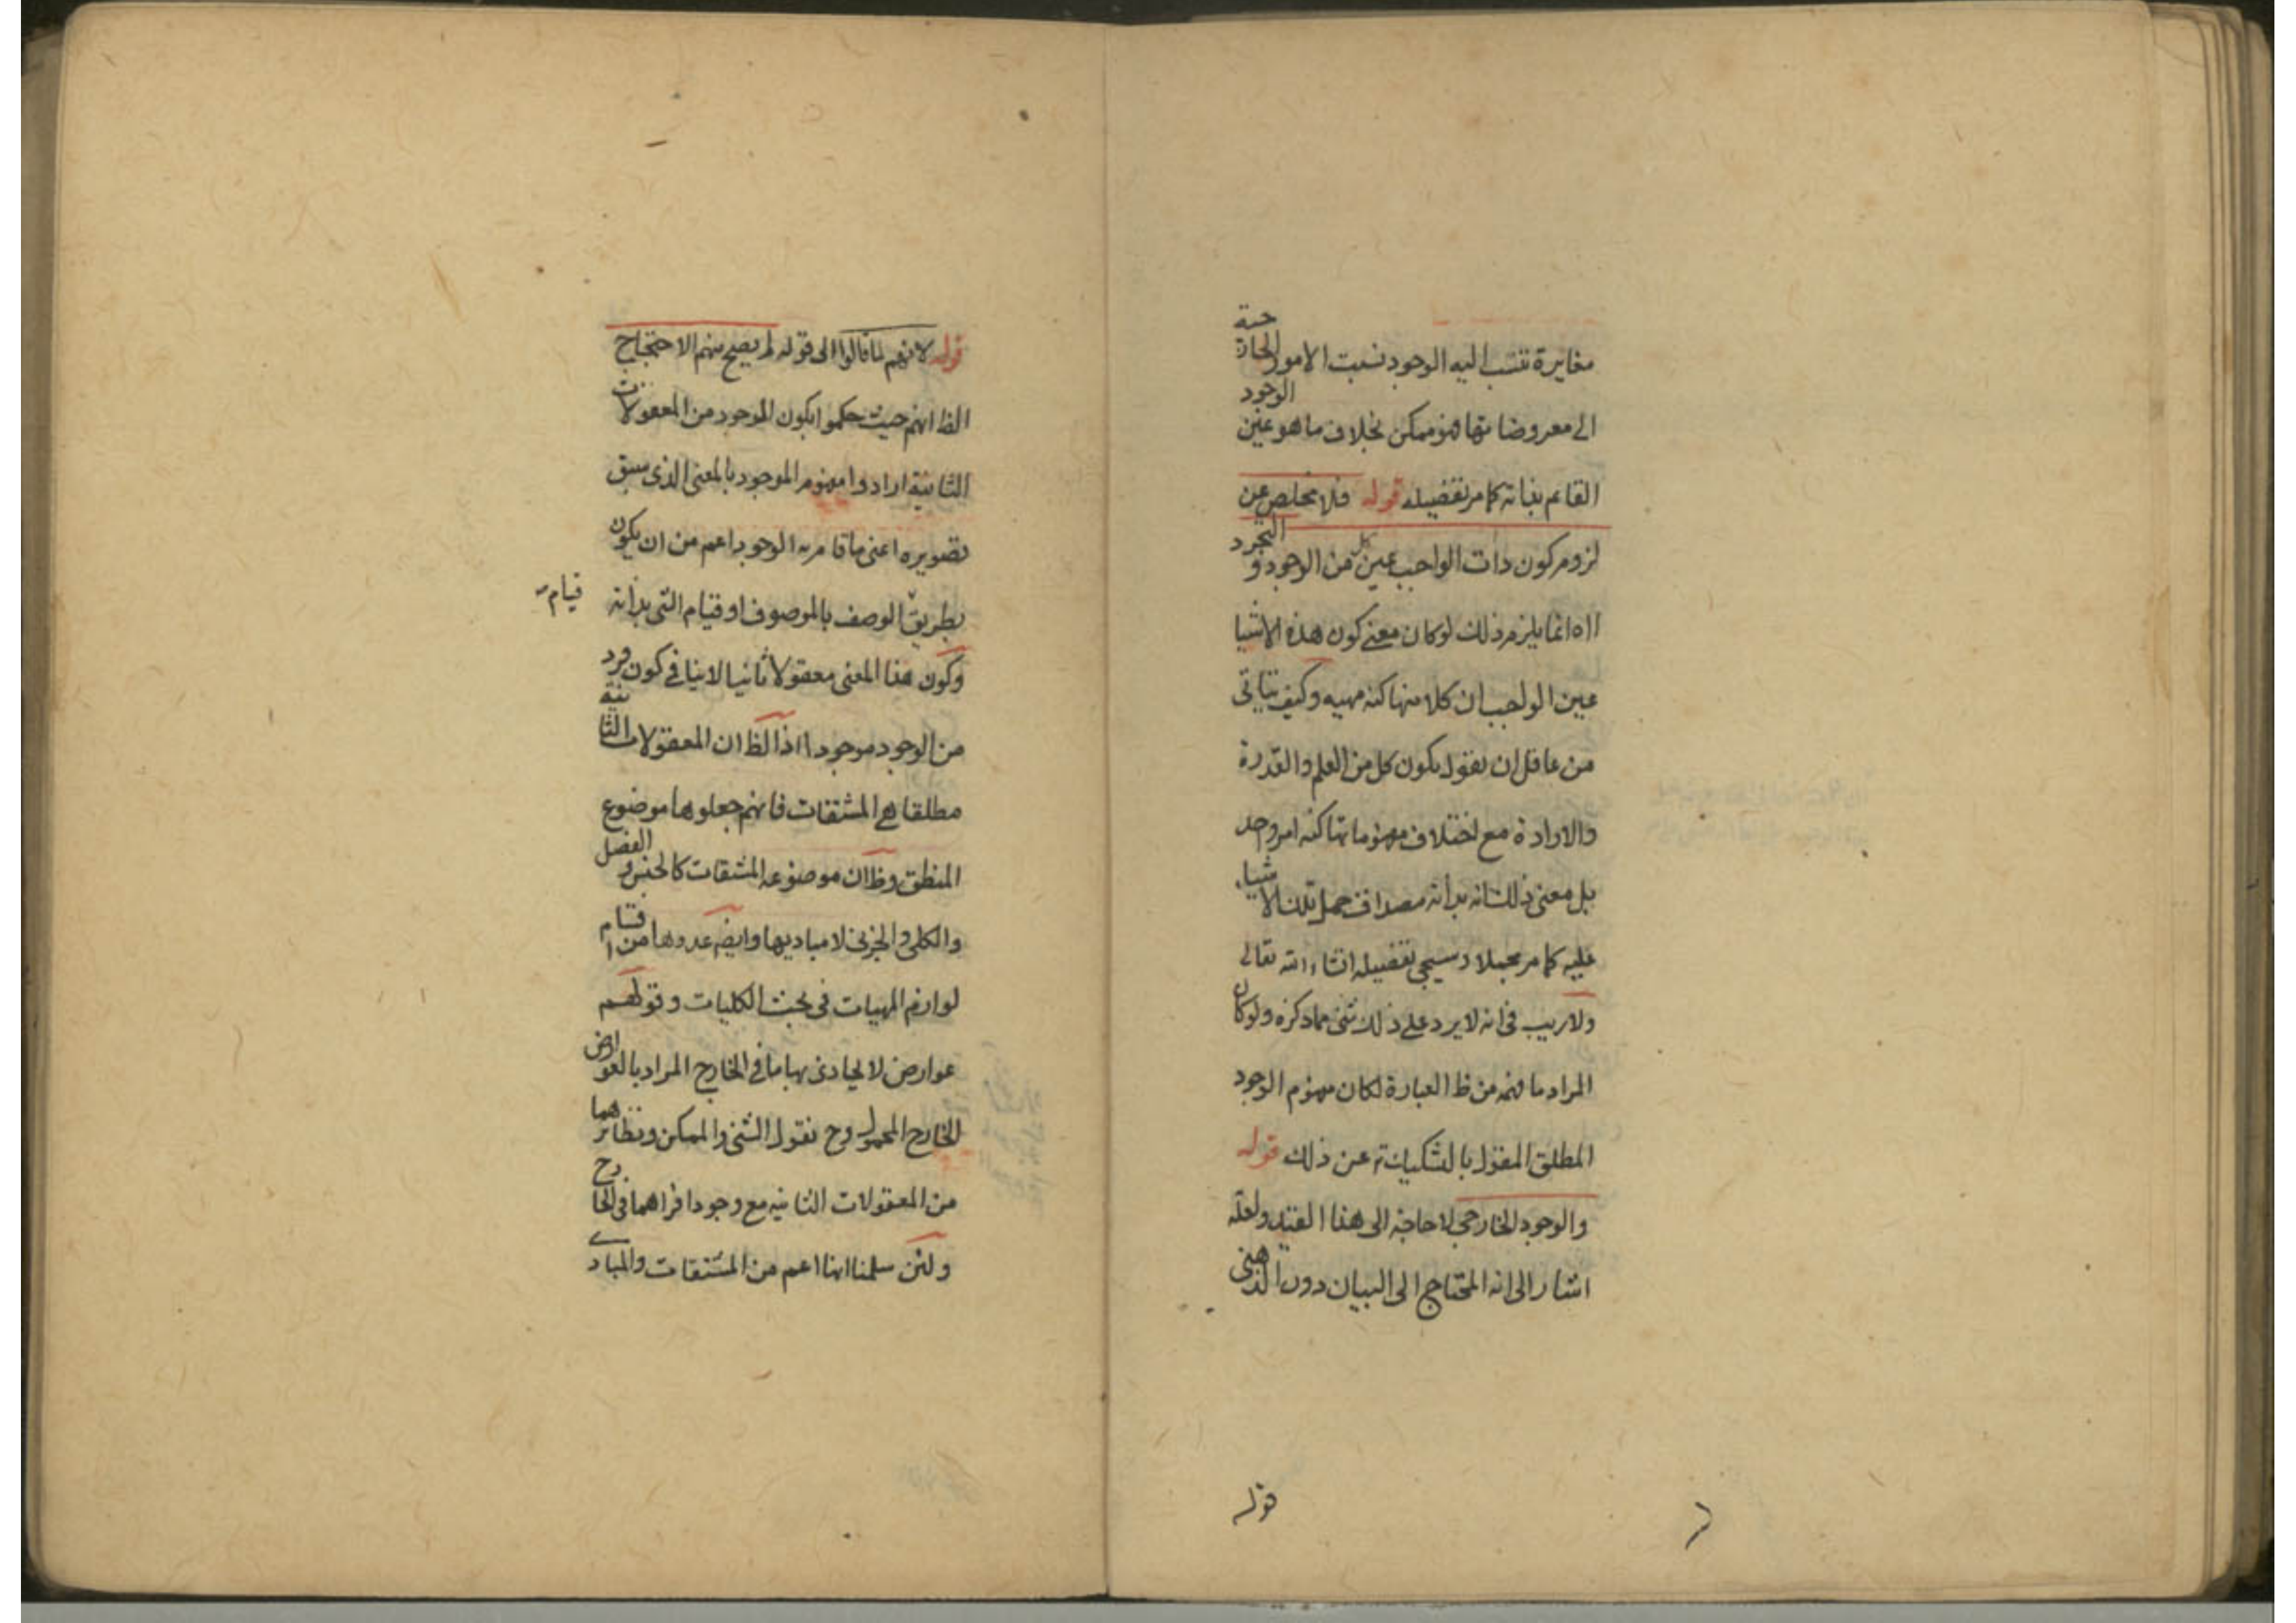 مغايرة تنتسب اليه الوجود نسبت الامور الخارجية
الى معروضاتها فهو ممكن بخلاف ما هو عين الوجود
القائم بذاته كما مر تفضيله قوله فلا مخلص عن
لزوم كون ذات الواجب عين كل من الوجود و التجرد
انما يلزم ذلك لو كان معنى كون هذه الاشيا
عين الواجب ان كلا منها كنه مهيه وكيف يتاتى
من عاقل ان يقول بكون كل من العلم والقدرة
والارادة مع اختلاف مفهوماتها كنه امر واحد
بل معنى ذلك انه بذاته مصداق حمل تلك الاشياء
عليه كما مر مجملا وسيجى تفصيله انشاء الله تعالى
ولا ريب فى انه لا يرد على ذلك شئ مما ذكره ولو كان
المراد ما فهمه من ظ العبارة لكان مفهوم الوجود
المطلق المقول بالتشكيك عن ذلك قوله
والوجود الخارجى لا حاجة الى هذا القيد ولعله
اشار الى انه المحتاج الى البيان دون الذهنى
قوله
قوله لانهم لما قالوا الى قوله لم يصح منهم الاحتجاج
الظ انهم حيث حكموا بكون الموجود من المعقولات
الثانية ارادوا مفهوم الموجود بالمعنى الذى سبق
تصويره اعنى ما قام به الوجود اعم من ان يكون
بطريق الوصف بالموصوف او قيام الشئ بذاته
قيام
وكون هذا المعنى معقولا ثانيا لا ينافى كون فرد
من الوجود موجودا اذ الظ ان المعقولات الثانية
مطلقا هى المشتقات فانهم جعلوها موضوع
المنطق وظ ان موضوعه المشتقات كالجنس و الفصل
والكلى والجزئى لا مباديها وايضه عدوها من اقسام
لوازم المهيات فى بحث الكليات وقولهم
عوارض لا يحاذى بها ما فى الخارج المراد بالعوارض
الخارج المحمول وح نقول الشئ والممكن ونظائرهما
من المعقولات الثانيه مع وجود افراهما فى الخارج
ولئن سلمنا انها اعم من المشتقات والمبادى